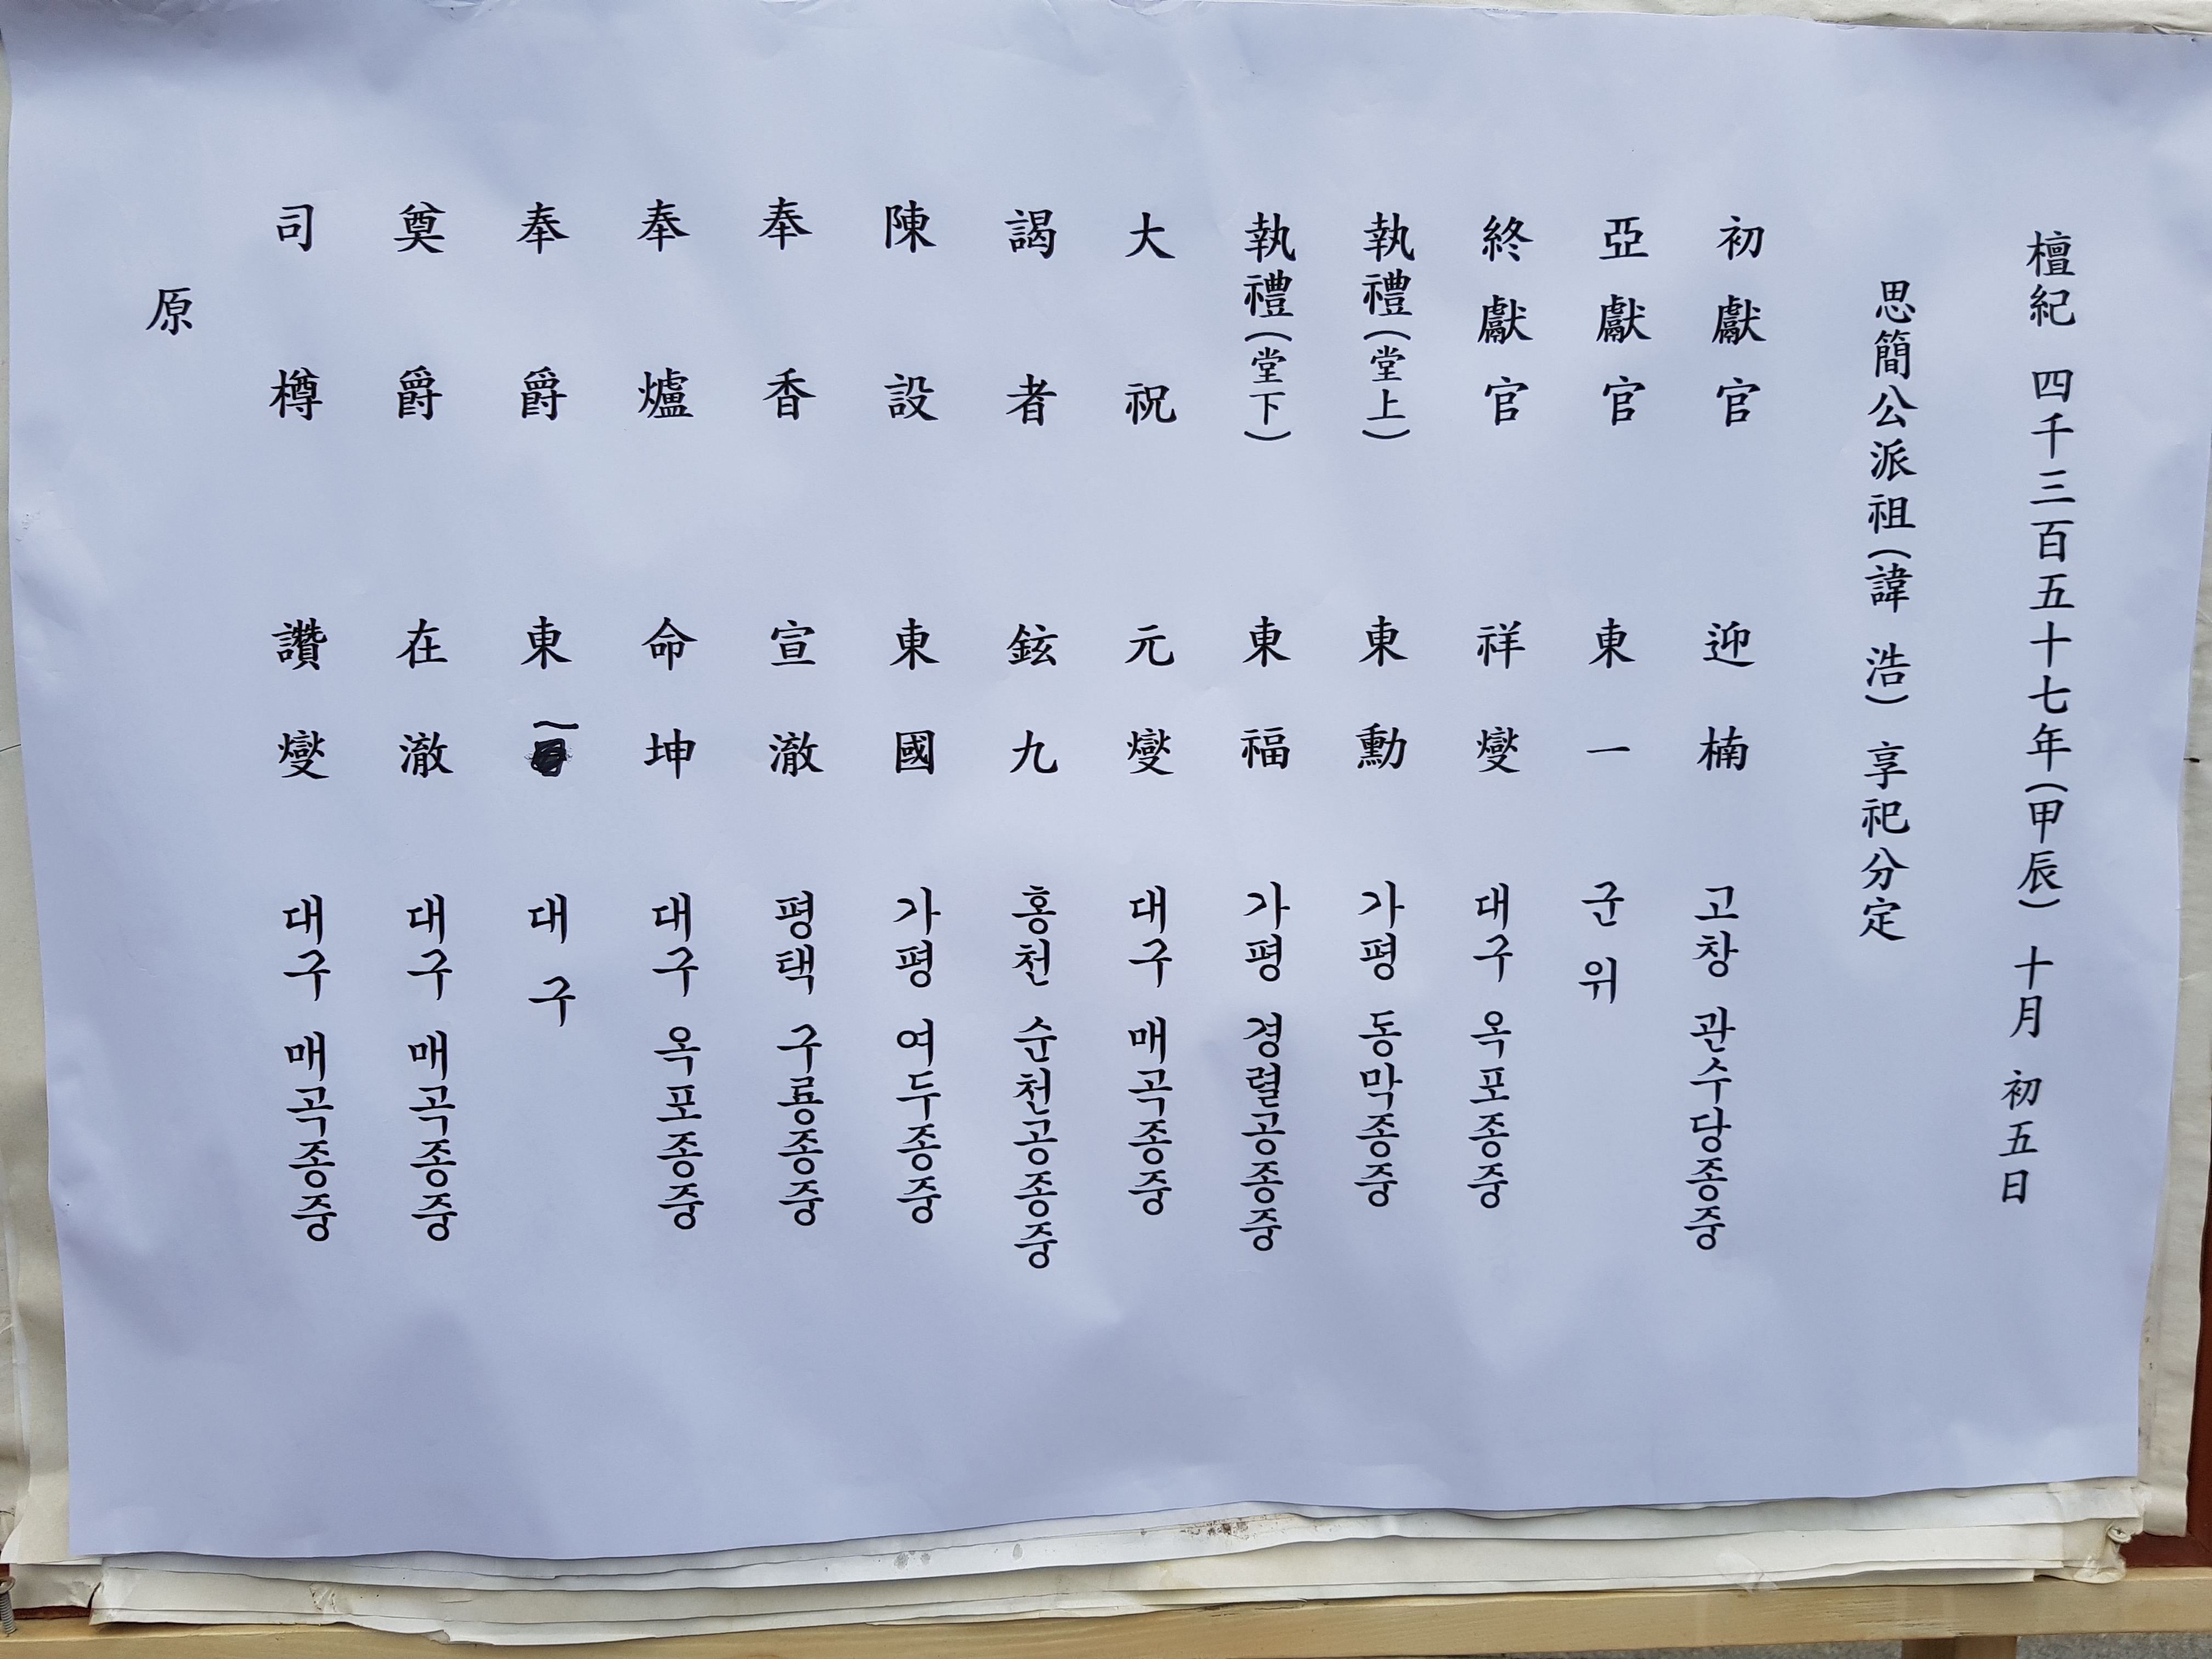 檀紀 四千三百五十七年(甲辰) 十月 初五日
思簡公派祖(諱 浩) 享祀分定
初獻官 迎楠 고창 관수당종중
亞獻官 東一 군위
終獻官 祥燮 대구 옥포종중
執禮(堂上) 東勳 가평 동막종중
執禮(堂下) 東福 가평 경렬공종중
大祝 元燮 대구 매곡종중
謁者 鉉九 홍천 순천공종중
陳設 東國 가평 여두종중
奉香 宣澈 평택 구룡종중
奉爐 命坤 대구 옥포종중
奉爵 東一 대구
奠爵 在澈 대구 매곡종중
司樽 讚燮 대구 매곡종중
原